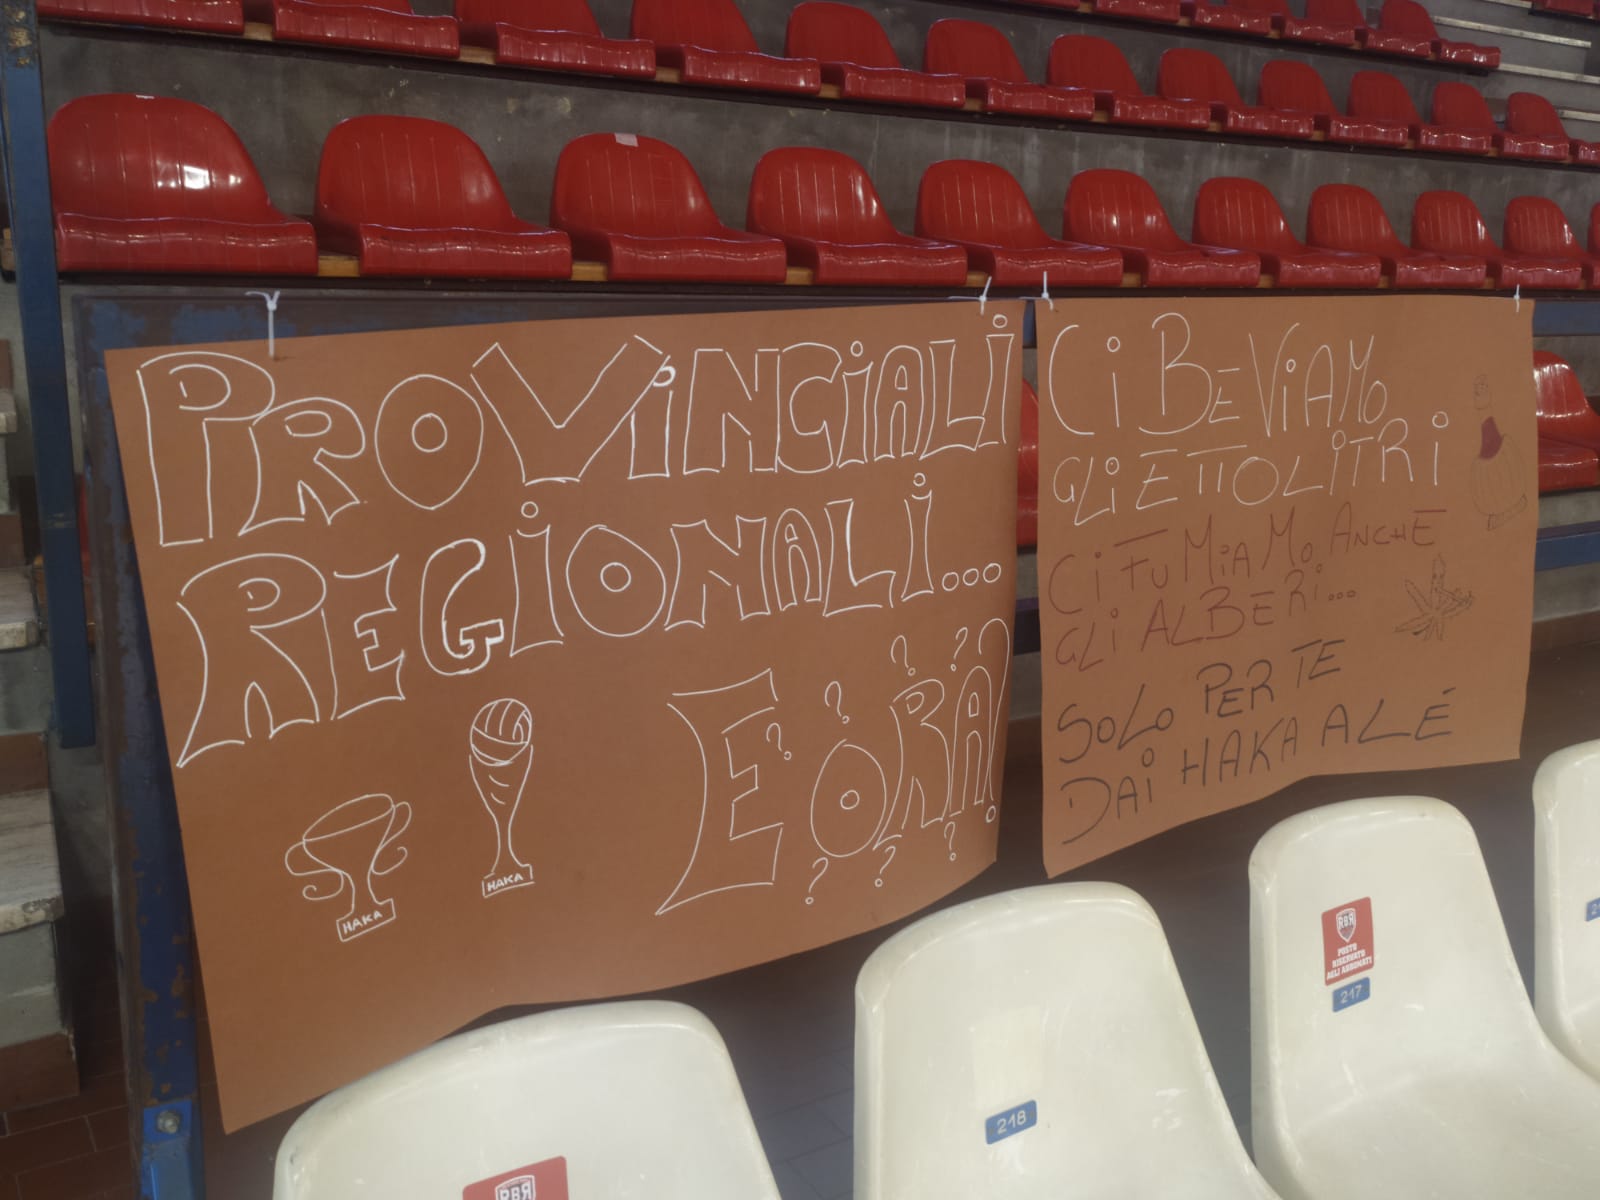 PROViNCiALi
REGiONALi...
E ORA
? ? ? ? ? ? ?
HAKA
HAKA
Ci BEViAMO
GLi ETTOLiTRi
Ci FUMiAMO ANCHE
GLi ALBERi...
SOLO PER TE
DAi HAKA ALÉ
RBR
POSTO
RISERVATO
AGLI ABBONATI
217
218
RBR